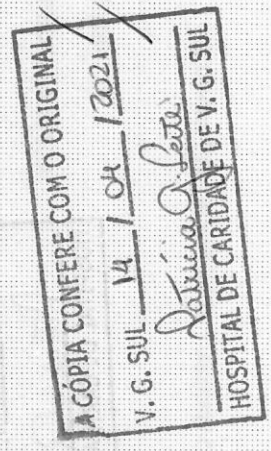 A CÓPIA CONFERE COM O ORIGINAL
V. G. SUL 14 / 04 / 2021
Patrícia G. Leite
HOSPITAL DE CARIDADE DE V. G. SUL